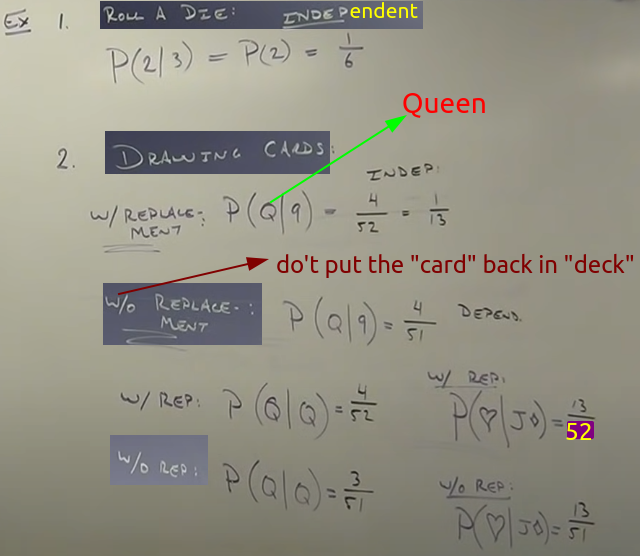 Ex 1. ROLL A DIE: INDEPendent
P(2|3) = P(2) = 1/6
Queen
2. DRAWING CARDS:
INDEP:
W/ REPLACE-MENT: P(Q|9) = 4/52 = 1/13
do't put the "card" back in "deck"
W/O REPLACE-MENT: P(Q|9) = 4/51 DEPEND.
W/ REP: P(Q|Q) = 4/52
W/ REP:
P(♡|J◊) = 13/52
W/O REP: P(Q|Q) = 3/51
W/O REP:
P(♡|J◊) = 13/51